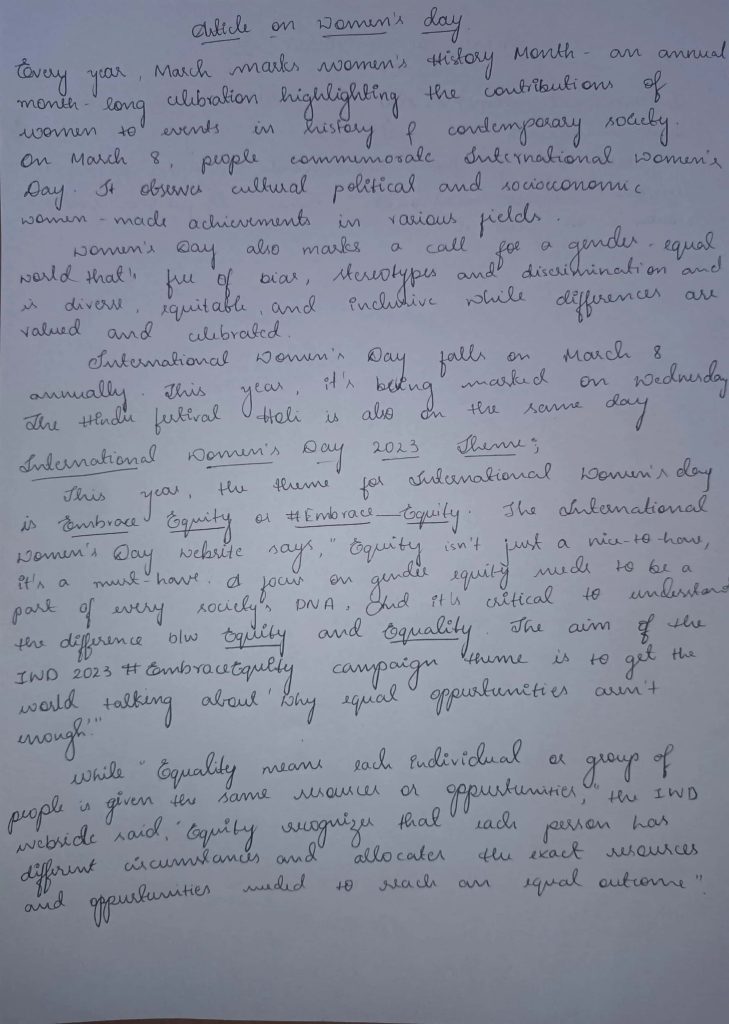 Article on Women's day
Every year, March marks women's History Month - an annual
month-long celibration highlighting the contributions of
women to events in history & contemporary society.
On March 8, people commemorate International women's
Day. It observes cultural political and socioeconomic
women-made achievements in various fields.
Women's Day also marks a call for a gender-equal
world that's free of bias, stereotypes and discrimination and
is diverse, equitable, and inclusive while differences are
valued and celibrated.
International Women's Day falls on March 8
annually. This year, it's being marked on Wednesday
The Hindu festival Holi is also on the same day
International Women's Day 2023 Theme;
This year, the theme for International Women's day
is Embrace Equity or #Embrace Equity. The International
Women's Day website says, "Equity isn't just a nice-to-have,
it's a must-have. A focus on gender equity needs to be a
part of every society's DNA. And it's critical to understand
the difference b/w Equity and Equality. The aim of the
IWD 2023 #EmbraceEquity campaign theme is to get the
world talking about 'Why equal oppurtunities aren't
enough'."
While "Equality means each individual or group of
people is given the same resources or oppurtunities," the IWD
webside said, "Equity recognizes that each person has
different circumstances and allocates the exact resources
and oppurtunities needed to reach an equal outcome".